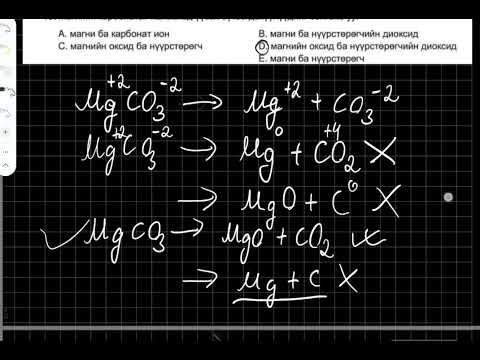 A. магни ба карбонат ион
B. магни ба нүүрстөрөгчийн диоксид
C. магнийн оксид ба нүүрстөрөгч
D. магнийн оксид ба нүүрстөрөгчийн диоксид
E. магни ба нүүрстөрөгч
Mg⁺²CO₃⁻² → Mg⁺² + CO₃⁻²
Mg⁺²CO₃⁻² → Mg⁰ + C⁺⁴O₂ X
→ MgO + C⁰ X
✓ MgCO₃ → MgO + CO₂ ✓
→ Mg + C X